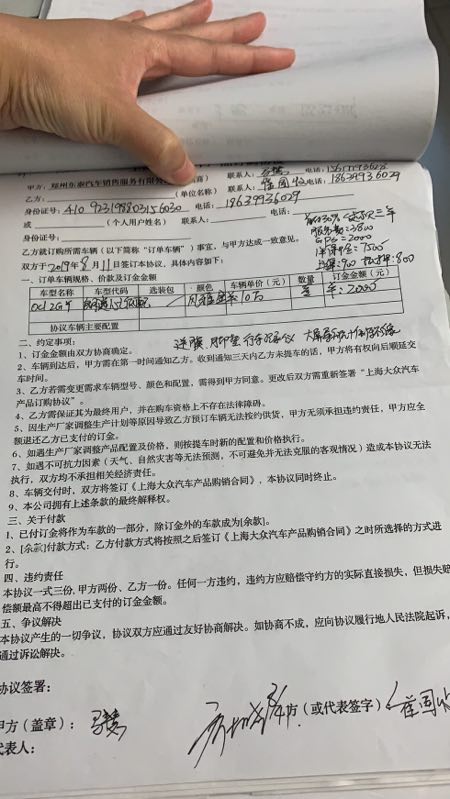 甲方：郑州东泰汽车销售服务有限
商） 联系人：
乙方： （单位名称） 联系人：崔国收 电话：18639936029
身份证号：410923198803156030 电话：18639936029
或 （个人用户姓名） 联系人： 电话：
身份证号：
乙方就订购所需车辆（以下简称“订单车辆”）事宜，与甲方达成一致意见。
双方于2019年8月11日签订本协议，具体内容如下：
GPS=2000
一、订单车辆规格、价款及订金金额
车型名称 车型代码 选装包 颜色 车辆单价（元） 数量 订金金额（元）
10万 2000
协议车辆主要配置
二、约定事项： 送膜 脚垫 行车记录仪
1、订金金额由双方协商确定。
2、车辆到达后，甲方需在第一时间通知乙方。收到通知三天内乙方未提车的话，甲方将有权向后顺延交
车时间。
3、乙方若需变更需求车辆型号、颜色和配置，需得到甲方同意。更改后双方需重新签署“上海大众汽车
产品订购协议”。
4、乙方需保证其为最终用户，并在购车资格上不存在法律障碍。
5、因生产厂家调整生产计划等原因导致乙方预订车辆无法按约供货，甲方无须承担违约责任，甲方应全
额退还乙方已支付的订金。
6、如遇生产厂家调整产品配置及价格，则按提车时新的配置和价格执行。
7、如遇不可抗力因素（天气、自然灾害等无法预测，不可避免并无法克服的客观情况）造成本协议无法
执行，双方均不承担相关经济责任。
8、车辆交付时，双方将签订《上海大众汽车产品购销合同》，本协议同时终止。
9、本公司拥有上述条款的最终解释权。
三、关于付款
1、已付订金将作为车款的一部分，除订金外的车款成为[余款]。
2、[余款]付款方式：乙方付款方式将按照之后签订《上海大众汽车产品购销合同》之时所选择的方式进
行。
四、违约责任
本协议一式三份，甲方两份、乙方一份。任何一方违约，违约方应赔偿守约方的实际直接损失，但损失赔
偿额最高不得超出已支付的订金金额。
五、争议解决
本协议产生的一切争议，协议双方应通过友好协商解决。如协商不成，应向协议履行地人民法院起诉，
通过诉讼解决。
协议签署：
甲方（盖章）： 乙方（或代表签字） 崔国收
代表人：